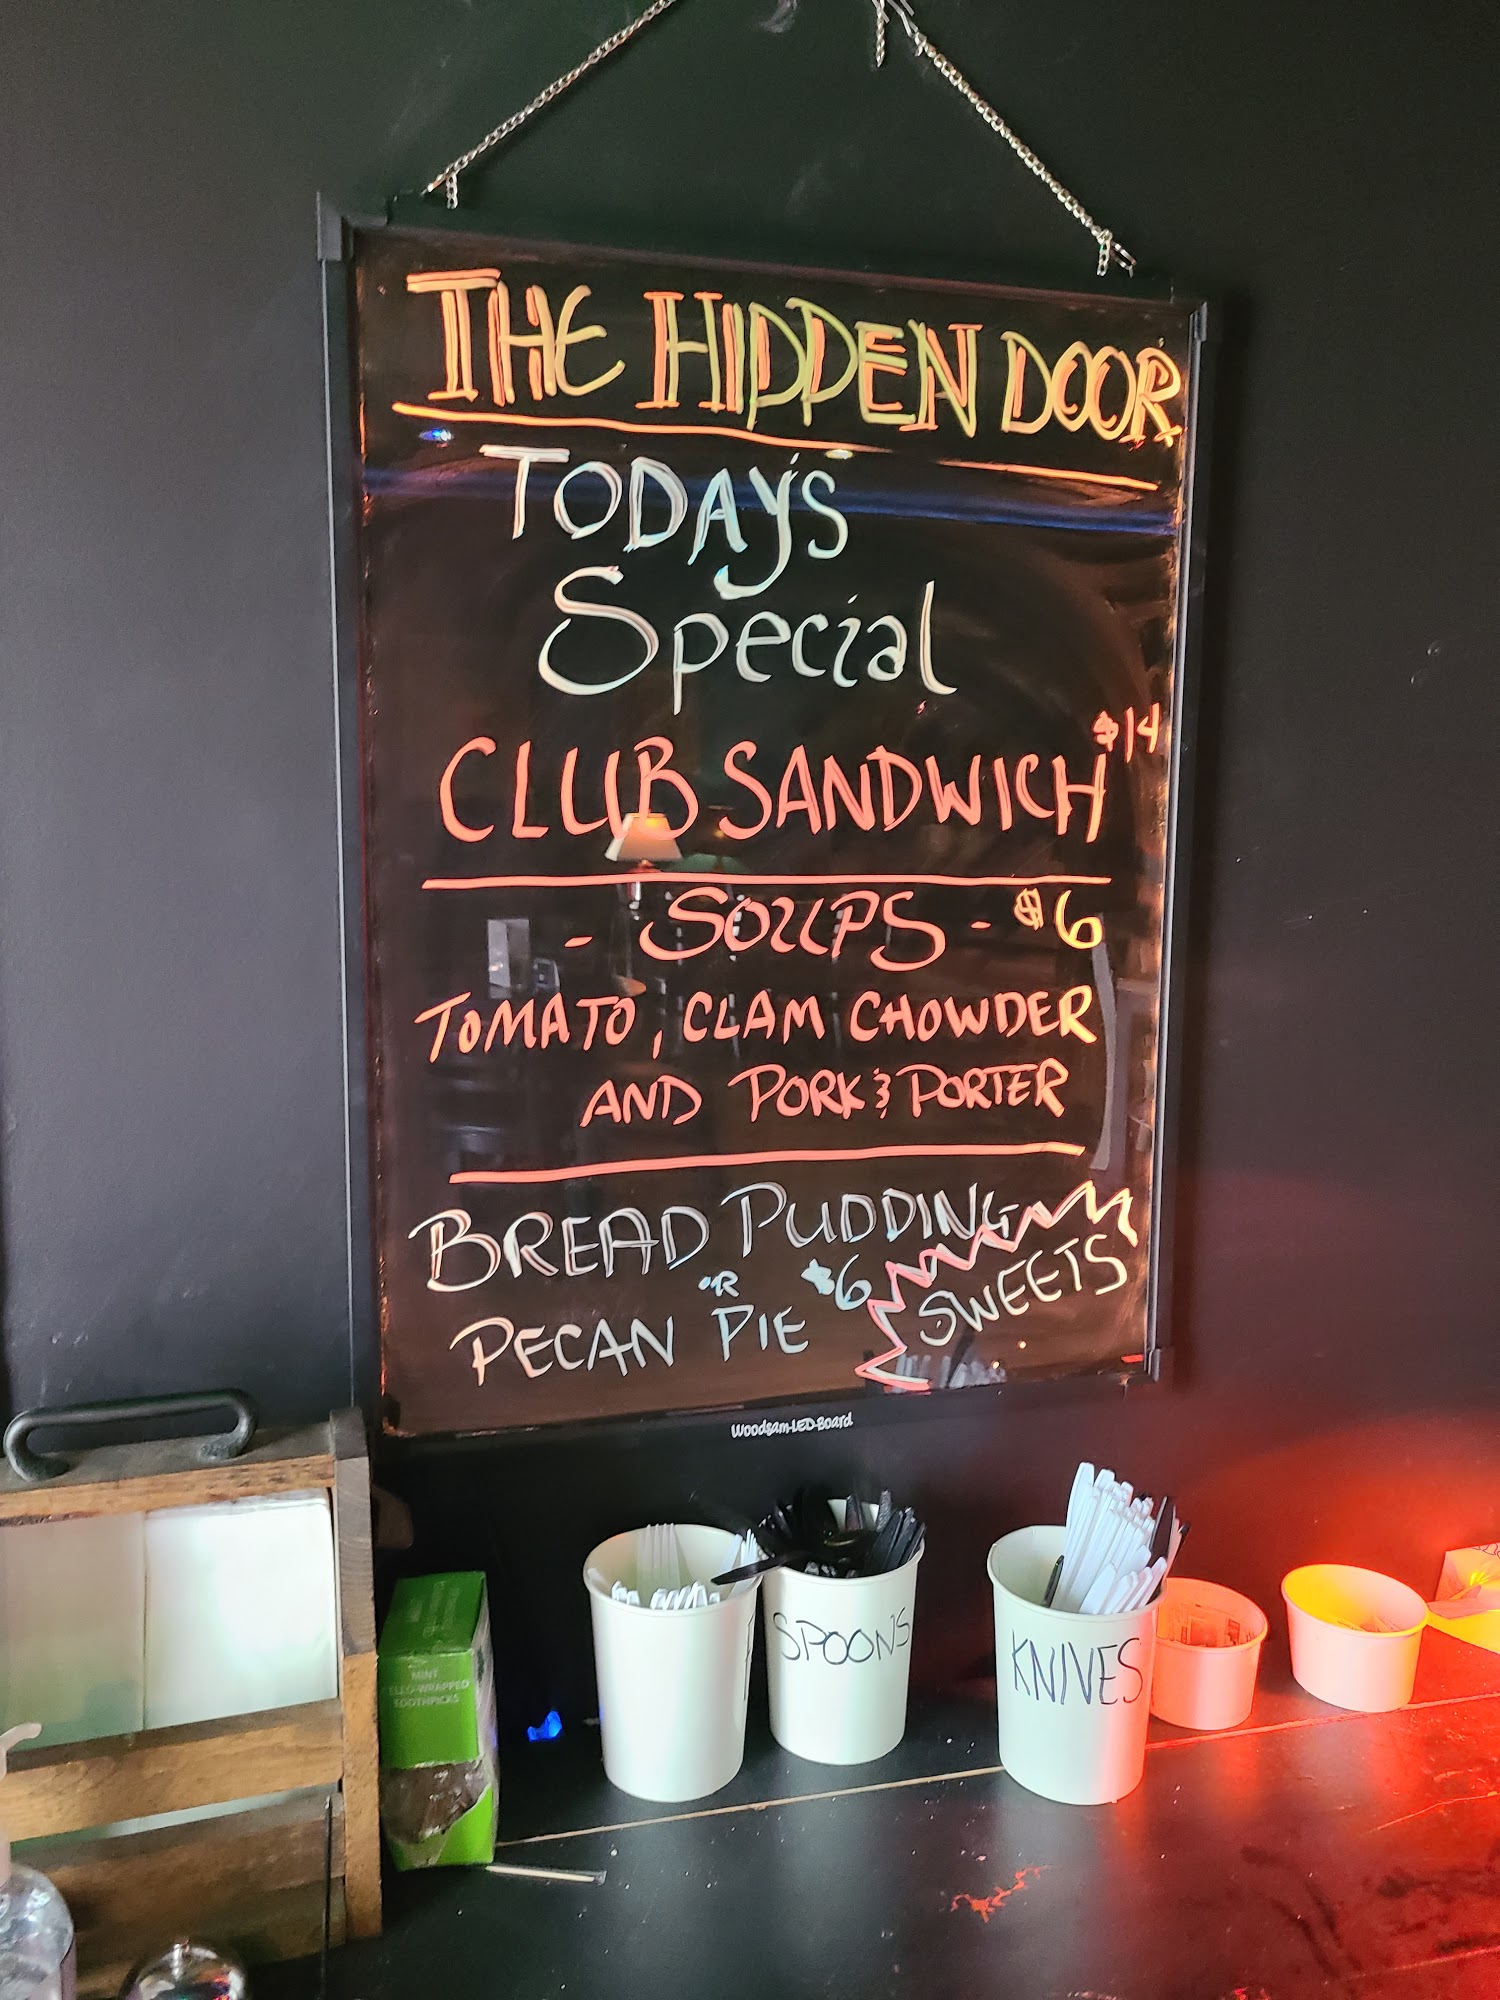 THE HIDDEN DOOR
TODAY'S
Special
$14
CLUB SANDWICH
- SOUPS - $6
TOMATO, CLAM CHOWDER
AND PORK & PORTER
BREAD PUDDING
OR $6
PECAN PIE
SWEETS
Woodsam-LED-Board
MINT
CELLO-WRAPPED
TOOTHPICKS
SPOONS
KNIVES